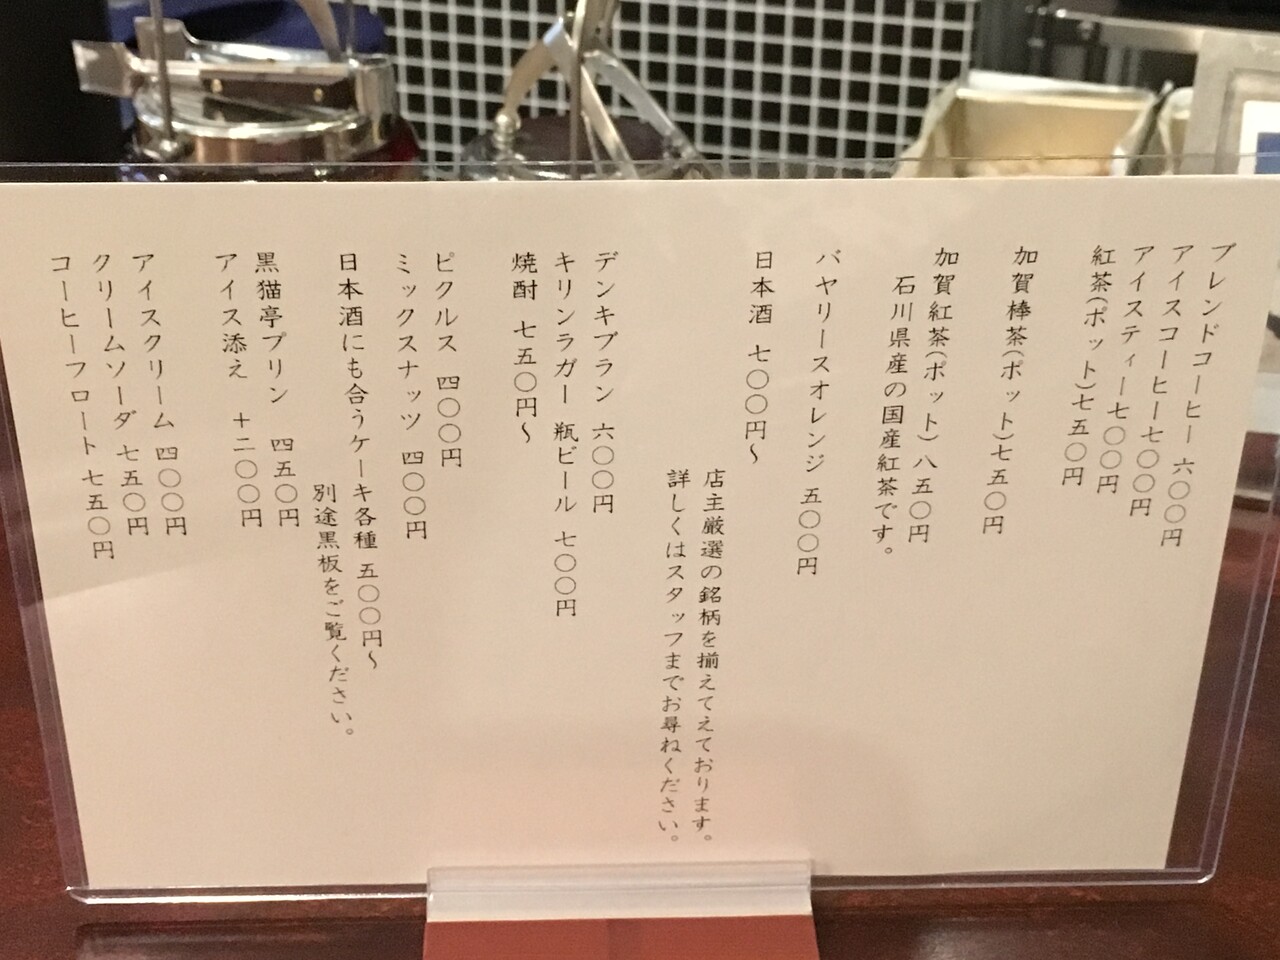 ブレンドコーヒー 六〇〇円
アイスコーヒー七〇〇円
アイスティー七〇〇円
紅茶(ポット)七五〇円
加賀棒茶(ポット)七五〇円
加賀紅茶(ポット)八五〇円
石川県産の国産紅茶です。
バヤリースオレンジ 五〇〇円
日本酒 七〇〇円〜
店主厳選の銘柄を揃えてえております。
詳しくはスタッフまでお尋ねください。
デンキブラン 六〇〇円
キリンラガー 瓶ビール 七〇〇円
焼酎 七五〇円〜
ピクルス 四〇〇円
ミックスナッツ 四〇〇円
日本酒にも合うケーキ各種 五〇〇円〜
別途黒板をご覧ください。
黒猫亭プリン 四五〇円
アイス添え +二〇〇円
アイスクリーム 四〇〇円
クリームソーダ 七五〇円
コーヒーフロート 七五〇円